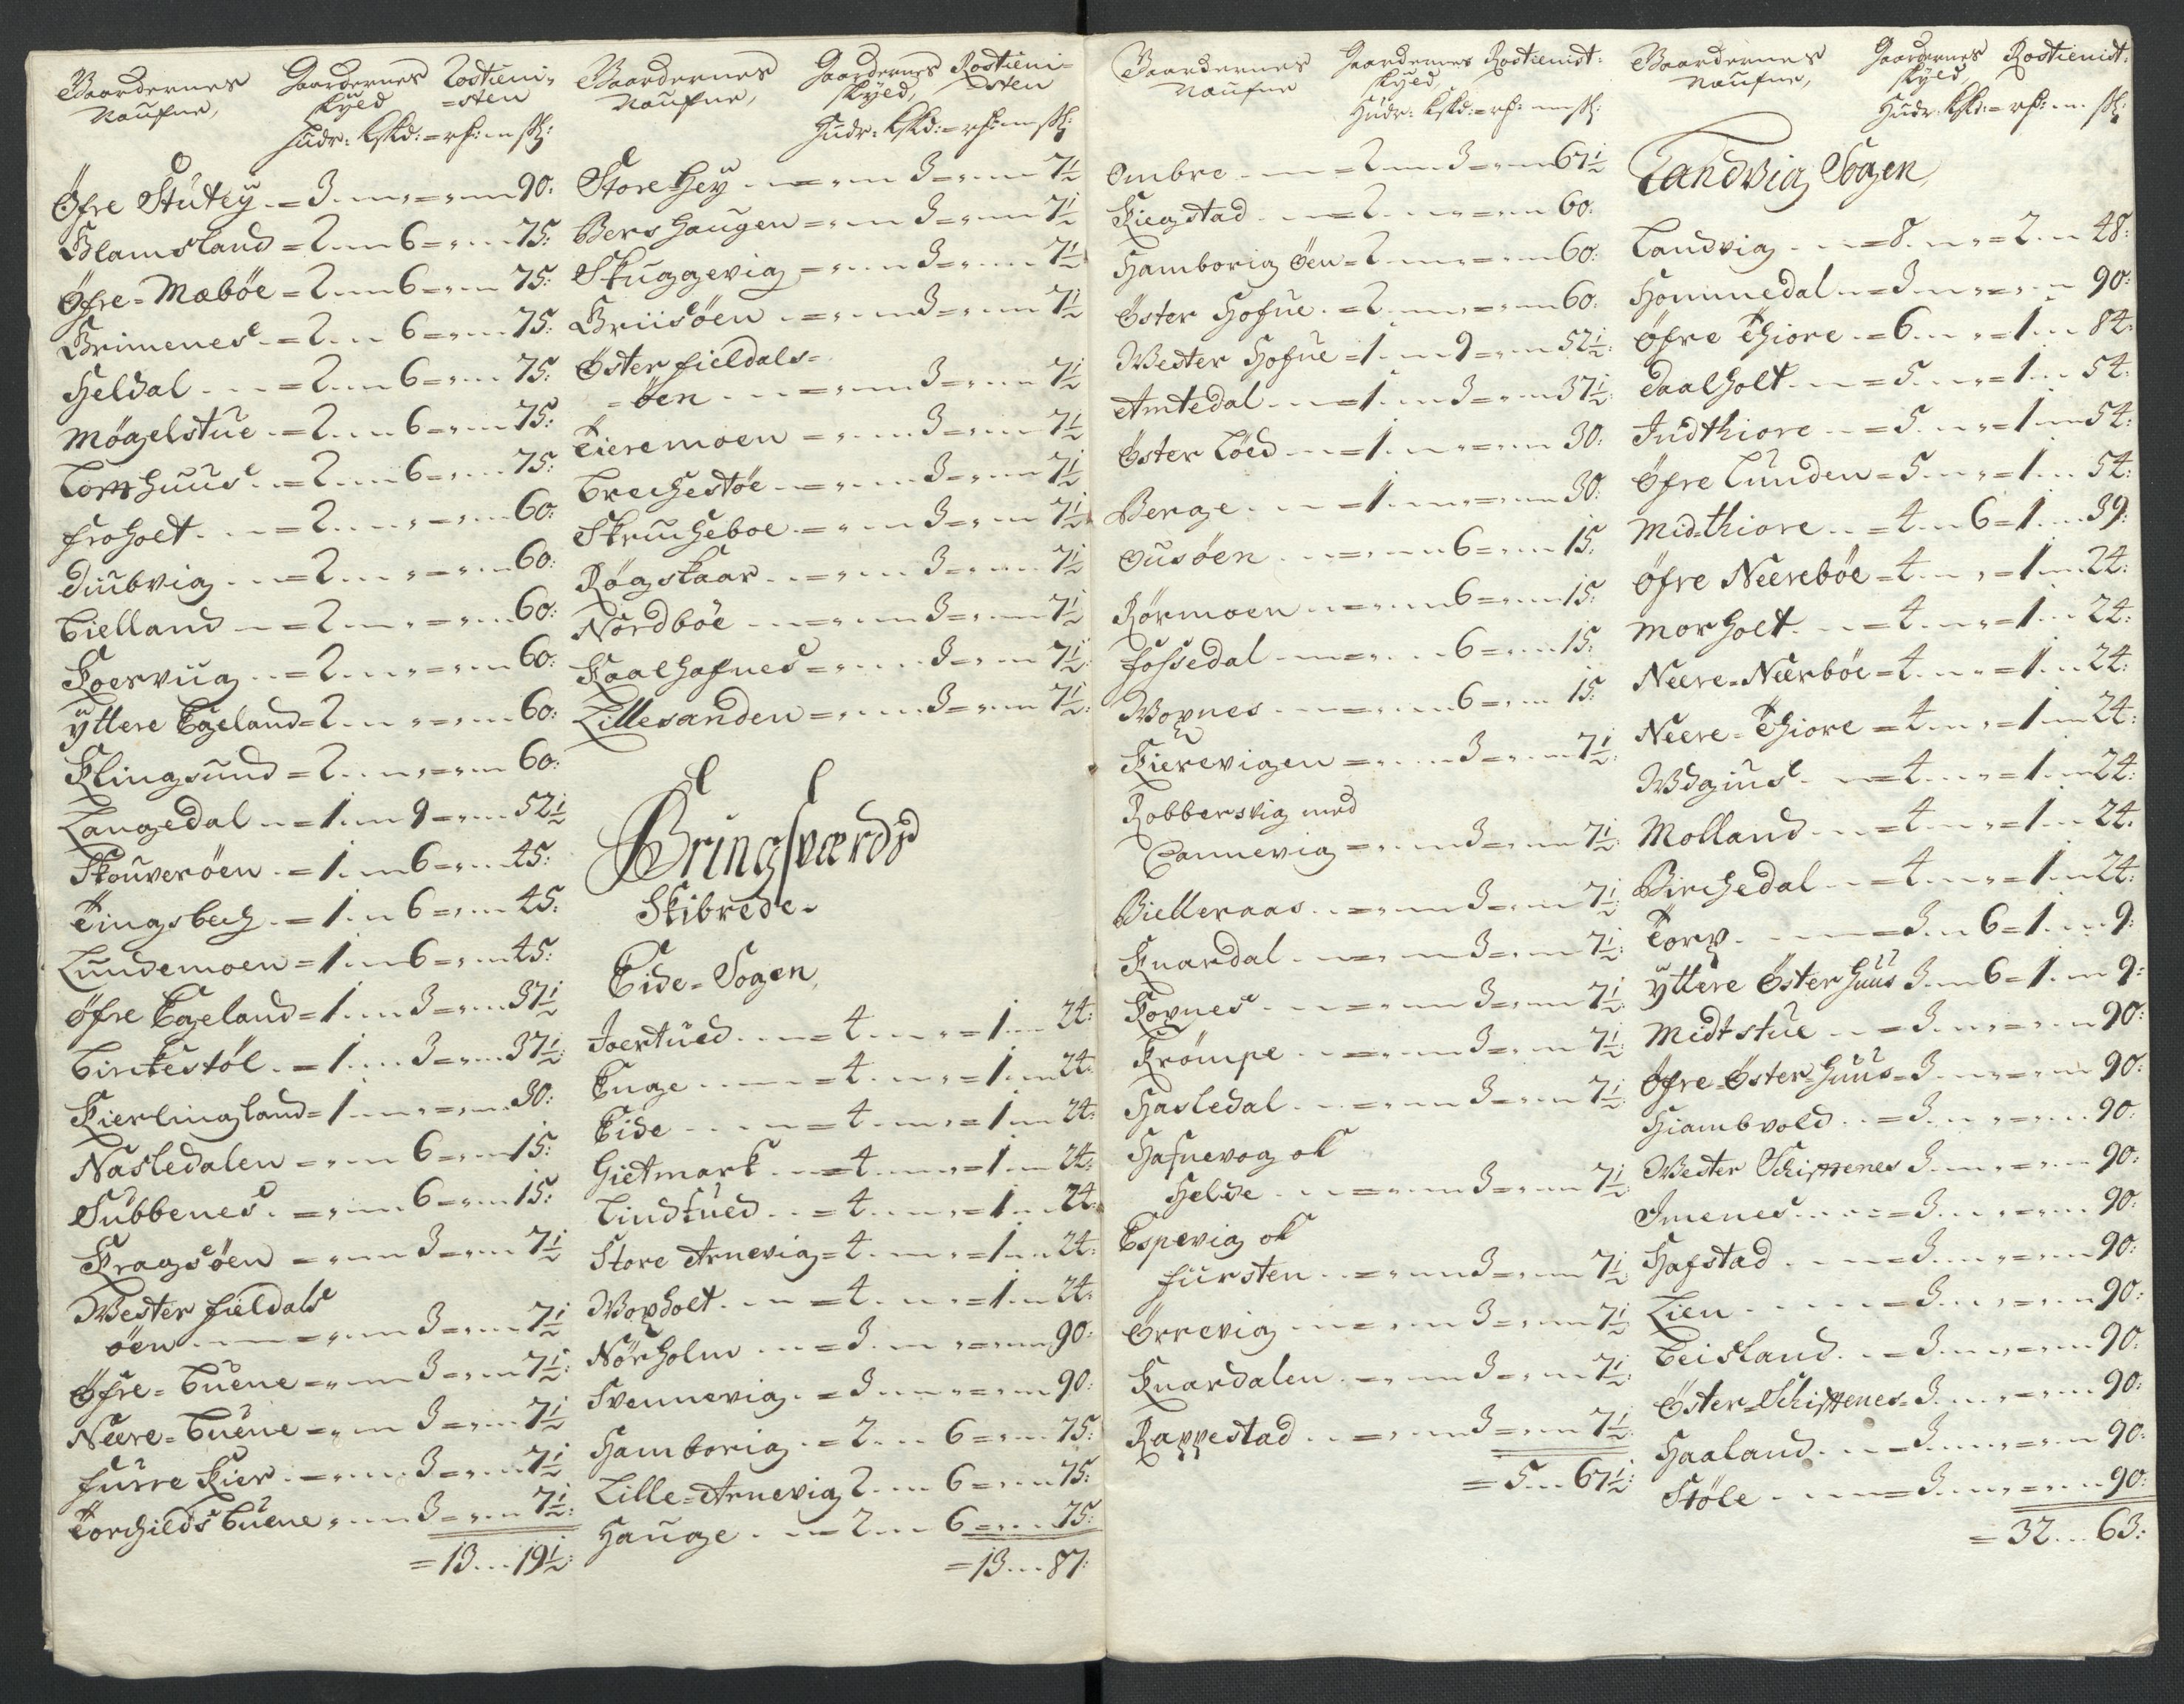 Gaardernes Naufne, Gaardernes skyld Rostieni=sten
Hudr: ks͠kd: = rh: ... sk:
Öfre Stutey . = 3 ... = ... 90:
Glamsland = 2 ... 6 = ... 75:
Öfre = Mæbøe = 2 ... 6 = ... 75:
Grimenes = 2 ... 6 = ... 75:
Heldal ... = 2 ... 6 = ... 75:
Møgelstue . = 2 ... 6 = ... 75:
Tomhuus . = 2 ... 6 = ... 75:
Froholt ... = 2 ... = ... 60:
Duubvig ... = 2 ... = ... 60:
Tielland ... = 2 ... = ... 60:
Koesviig ... = 2 ... = ... 60:
Yttere Egeland = 2 ... = ... 60:
Klingsund = 2 ... = ... 60:
Langedal ... = 1 ... 9 = ... 52½
Skouverøen . = 1 ... 6 = ... 45:
Tingsbech . = 1 ... 6 = ... 45:
Lundemoen = 1 ... 6 = ... 45:
Öfre Egeland = 1 ... 3 = ... 37½
Birkestøl . = 1 ... 3 = ... 37½:
Kierlingland = 1 ... = ... 30:
Nasledalen = ... 6 = ... 15:
Tubbenes . = ... 6 = ... 15:
Kragsøen = ... 3 = ... 7½
Wester fieldals
øen ... = ... 3 = ... 7½
Öfre = Tuene = ... 3 = ... 7½:
Neere = Tuene = ... 3 = ... 7½
Furre Kier . = ... 3 = ... 7½
Torchilds Tuene ... 3 = ... 7½:
= 13 ... 19½:
Gaardernes Naufne, Gaardernes skyld, Rostieni=sten
Hudr: kskd: = rh: ... sk:
Store Hey ... = ... 3 = ... 7½
Bershaugen = ... 3 = ... 7½
Skuggevig = ... 3 = ... 7½
Griisøen ... = ... 3 = ... 7½
Öster fieldals=
= øen ... = ... 3 = ... 7½
Tieremoen = ... 3 = ... 7½
Brechestøe ... = ... 3 = ... 7½
Skruucheboe . = ... 3 = ... 7½
Røgskaar ... = ... 3 = ... 7½
Nordbøe ... = ... 3 = ... 7½
Kaalhafnes = ... 3 = ... 7½
Lillesanden = ... 3 = ... 7½:
Bringsværds
Skibrede.
Eide = Sogen,
Joertued ... = 4 ... = 1 ... 24:
Enge ... = 4 ... = 1 ... 24:
Eide ... = 4 ... = 1 ... 24:
Gietmark ... = 4 ... = 1 ... 24:
Lindtued . = 4 ... = 1 ... 24:
Store Arnevig = 4 ... = 1 ... 24:
Woxholt ... = 4 ... = 1 ... 24:
Nørholm ... = 3 ... = ... 90:
Svennevig . = 3 ... = ... 90:
Hamborig . = 2 ... 6 = ... 75:
Lille = Arnevig 2 ... 6 = ... 75:
Hauge ... = 2 ... 6 = ... 75:
= 13 ... 87:
Gaardernes Naufne Gaardernes skyld Rostienist:
Hudr: kskd: = rh: ... sk:
Ombre ... = 2 ... 3 = ... 67½
Riegstad ... = 2 ... = ... 60:
Hamborig Öen = 2 ... = ... 60:
Öster Hofue . = 2 ... = ... 60:
Wester Hofue = 1 ... 9 = ... 52½:
Amtedal ... = 1 ... 3 = ... 37½:
Öster Löed ... = 1 ... = ... 30:
Berge ... = 1 ... = ... 30:
Ousøen ... = ... 6 = ... 15:
Rørmoen ... = ... 6 = ... 15:
Fossedal ... = ... 6 = ... 15:
Woxnes ... = ... 6 = ... 15:
Kierevigen = ... 3 = ... 7½:
Robbersvig med
Cannevig = ... 3 = ... 7½:
Bielleraas . = ... 3 = ... 7½:
Knardal ... = ... 3 = ... 7½:
Koxnes ... = ... 3 = ... 7½:
Krömpe ... = ... 3 = ... 7½:
Hasledal ... = ... 3 = ... 7½:
Hafnevog ok
Helde ... = ... 3 = ... 7½
Espevig ok
Fursten ... = ... 3 = ... 7½
Örrevig ... = ... 3 = ... 7½
Knardalen ... = ... 3 = ... 7½
Rappestad ... = ... 3 = ... 7½
= 5 ... 67½:
Gaardernes Naufne, Gaardernes skyld, Rostienist:
Hudr: kskd: = rh: ... sk:
Landvig Sogen,
Landvig ... = 8 ... = 2 ... 48:
Hommedal ... = 3 ... = ... 90:
Öfre Thiore . = 6 ... = 1 ... 84:
Daalholt ... = 5 ... = 1 ... 54:
Indthiore ... = 5 ... = 1 ... 54:
Öfre Lunden = 5 ... = 1 ... 54:
Midthiore ... = 4 ... 6 = 1 ... 39:
Öfre Neerebøe = 4 ... = 1 ... 24:
Morholt ... = 4 ... = 1 ... 24:
Neere = Neerbøe = 4 ... = 1 ... 24:
Neere = Thiore = 4 ... = 1 ... 24:
Wdgius ... = 4 ... = 1 ... 24:
Molland ... = 4 ... = 1 ... 24:
Birchedal ... = 4 ... = 1 ... 24:
Torp ... = 3 ... 6 = 1 ... 9:
Yttere Österhuus 3 ... 6 = 1 ... 9:
Midtstue ... = 3 ... = ... 90:
Öfre = Öster = Huus = 3 ... = ... 90:
Hiambvold . = 3 ... = ... 90:
Wester Schiftenes 3 ... = ... 90:
Imenes ... = 3 ... = ... 90:
Hafstad ... = 3 ... = ... 90:
Lien ... = 3 ... = ... 90:
Beisland ... = 3 ... = ... 90:
Öster = Schiftenes = 3 ... = ... 90:
Haaland ... = 3 ... = ... 90:
Støle ... = 3 ... = ... 90:
= 32 ... 63: